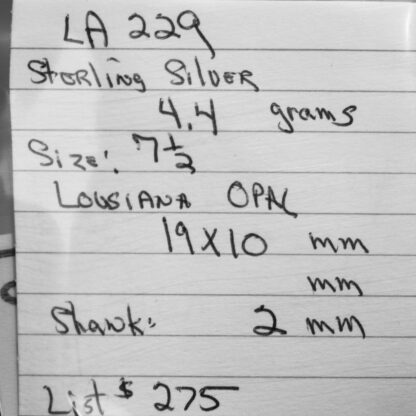 LA 229
STERLING SILVER
4.4 grams
Size: 7 1/2
LOUSIANA OPAL
19X10 mm
mm
Shank: 2 mm
List $ 275